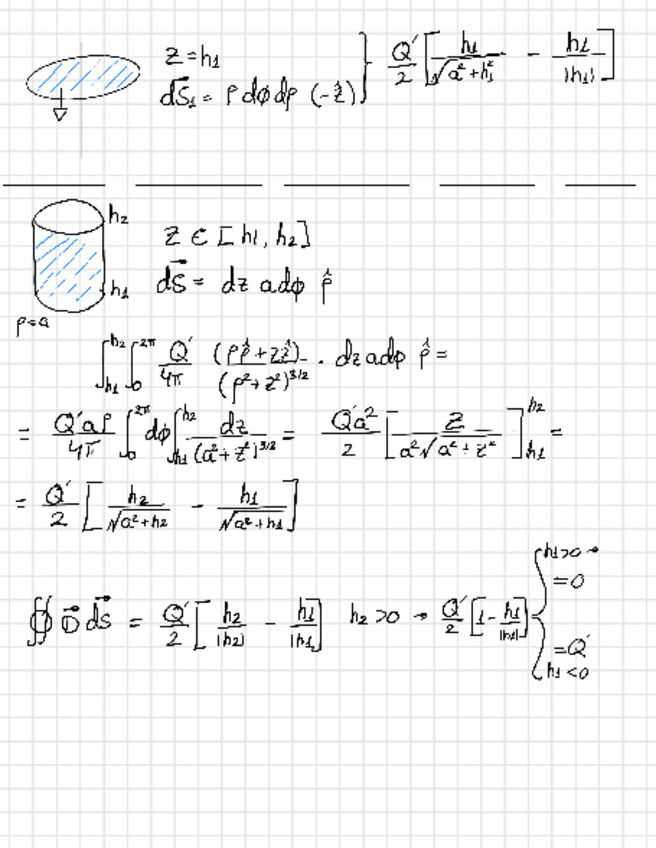 z = h₁
dS⃗₁ = ρ dϕ dρ (-ẑ) } Q'/2 [ h₁/√(a²+h₁²) - h₁/|h₁| ]
h₂
h₁
ρ=a
z ∈ [h₁, h₂]
dS⃗ = dz a dϕ ρ̂
∫_{h₁}^{h₂} ∫_0^{2π} Q'/4π (ρρ̂ + zẑ)/(ρ²+z²)^{3/2} · dz a dϕ ρ̂ =
= Q'aρ/4π ∫_0^{2π} dϕ ∫_{h₁}^{h₂} dz/(a²+z²)^{3/2} = Q'a²/2 [ z/(a²√(a²+z²)) ]_{h₁}^{h₂} =
= Q'/2 [ h₂/√(a²+h₂) - h₁/√(a²+h₁) ]
∯ D⃗ dS⃗ = Q'/2 [ h₂/|h₂| - h₁/|h₁| ] h₂>0 → Q'/2 [ 1 - h₁/|h₁| ] {
h₁>0 →
=0
=Q'
h₁<0